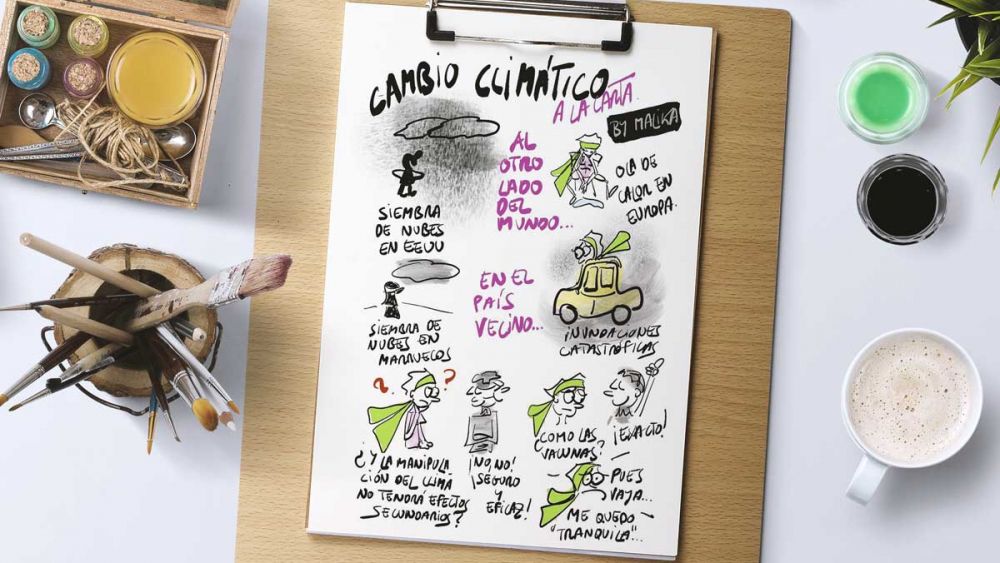 CAMBIO CLIMÁTICO
A LA CARTA.
BY MALIKA
SIEMBRA
DE NUBES
EN EEUU
AL
OTRO
LADO
DEL
MUNDO...
OLA DE
CALOR EN
EUROPA.
SIEMBRA DE
NUBES EN
MARRUECOS
EN EL
PAÍS
VECINO...
INUNDACIONES
CATASTRÓFICAS
? ?
¿Y LA MANIPULA
CIÓN DEL CLIMA
NO TENDRÁ EFECTOS
SECUNDARIOS?
¡NO, NO!
¡SEGURO
Y
EFICAZ!
¿COMO LAS
VACUNAS?
¡EXACTO!
PUES
VAYA...
ME QUEDO
"TRANQUILA"...